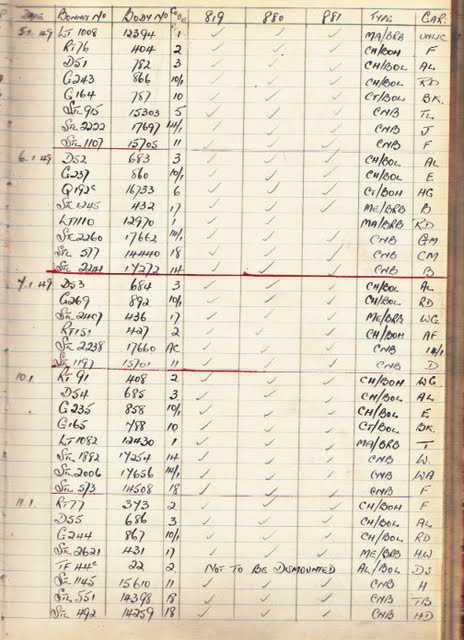 DATE BONNET NO BODY NO CODE 819 880 881 TYPE GAR.
5.1.49 LT 1008 12394 1 ✓ ✓ ✓ MA/BRB UNLIC
RT76 404 2 ✓ ✓ ✓ CH/BOH F
D51 782 3 ✓ ✓ ✓ CH/BOL AL
G243 866 10/1 ✓ ✓ ✓ CH/BOL RD
G164 787 10 ✓ ✓ ✓ CT/BOL BK.
STL 915 15303 5 ✓ ✓ ✓ CNB TL
STL 2222 17697 14/1 ✓ ✓ ✓ CNB J
STL 1107 15705 11 ✓ ✓ ✓ CNB F
6.1.49 D52 683 3 ✓ ✓ ✓ CH/BOL AL
G237 860 10/1 ✓ ✓ ✓ CH/BOL E
Q192c 16733 6 ✓ ✓ ✓ CT/BOH HG
STL 1245 432 17 ✓ ✓ ✓ ME/BRB B
LT1110 12970 1 ✓ ✓ ✓ MA/BRB RD
STL 2260 17662 14/1 ✓ ✓ ✓ CNB GM
STL 577 14440 18 ✓ ✓ ✓ CNB CM
STL 2241 17272 14 ✓ ✓ ✓ CNB B
7.1.49 D53 684 3 ✓ ✓ ✓ CH/BOL AL
G269 892 10/1 ✓ ✓ ✓ CH/BOL RD
STL 2407 436 17 ✓ ✓ ✓ ME/BRB WG
RT151 427 2 ✓ ✓ ✓ CH/BOH AF
STL 2238 17660 AC ✓ ✓ ✓ CNB 14/1
STL 1197 15701 11 ✓ ✓ ✓ CNB D
10.1. RT 91 408 2 ✓ ✓ ✓ CH/BOH WG.
D54 685 3 ✓ ✓ ✓ CH/BOL AL
G235 858 10/1 ✓ ✓ ✓ CH/BOL E
G165 788 10 ✓ ✓ ✓ CT/BOL BK.
LT 1082 12430 1 ✓ ✓ ✓ MA/BRB T
STL 1882 17254 14 ✓ ✓ ✓ CNB W.
STL 2006 17656 14/1 ✓ ✓ ✓ CNB WA
STL 573 14508 18 ✓ ✓ ✓ CNB F
11.1. RT77 373 2 ✓ ✓ ✓ CH/BOH F
D55 686 3 ✓ ✓ ✓ CH/BOL AL
G244 867 10/1 ✓ ✓ ✓ CH/BOL RD
STL 2621 431 17 ✓ ✓ ✓ ME/BRB HW
TF 44c 22 2 NOT TO BE DISMOUNTED AL/BOL DS
STL 1145 15610 11 ✓ ✓ ✓ CNB H
STL 551 14398 18 ✓ ✓ ✓ CNB TB
STL 492 14259 18 ✓ ✓ ✓ CNB HD